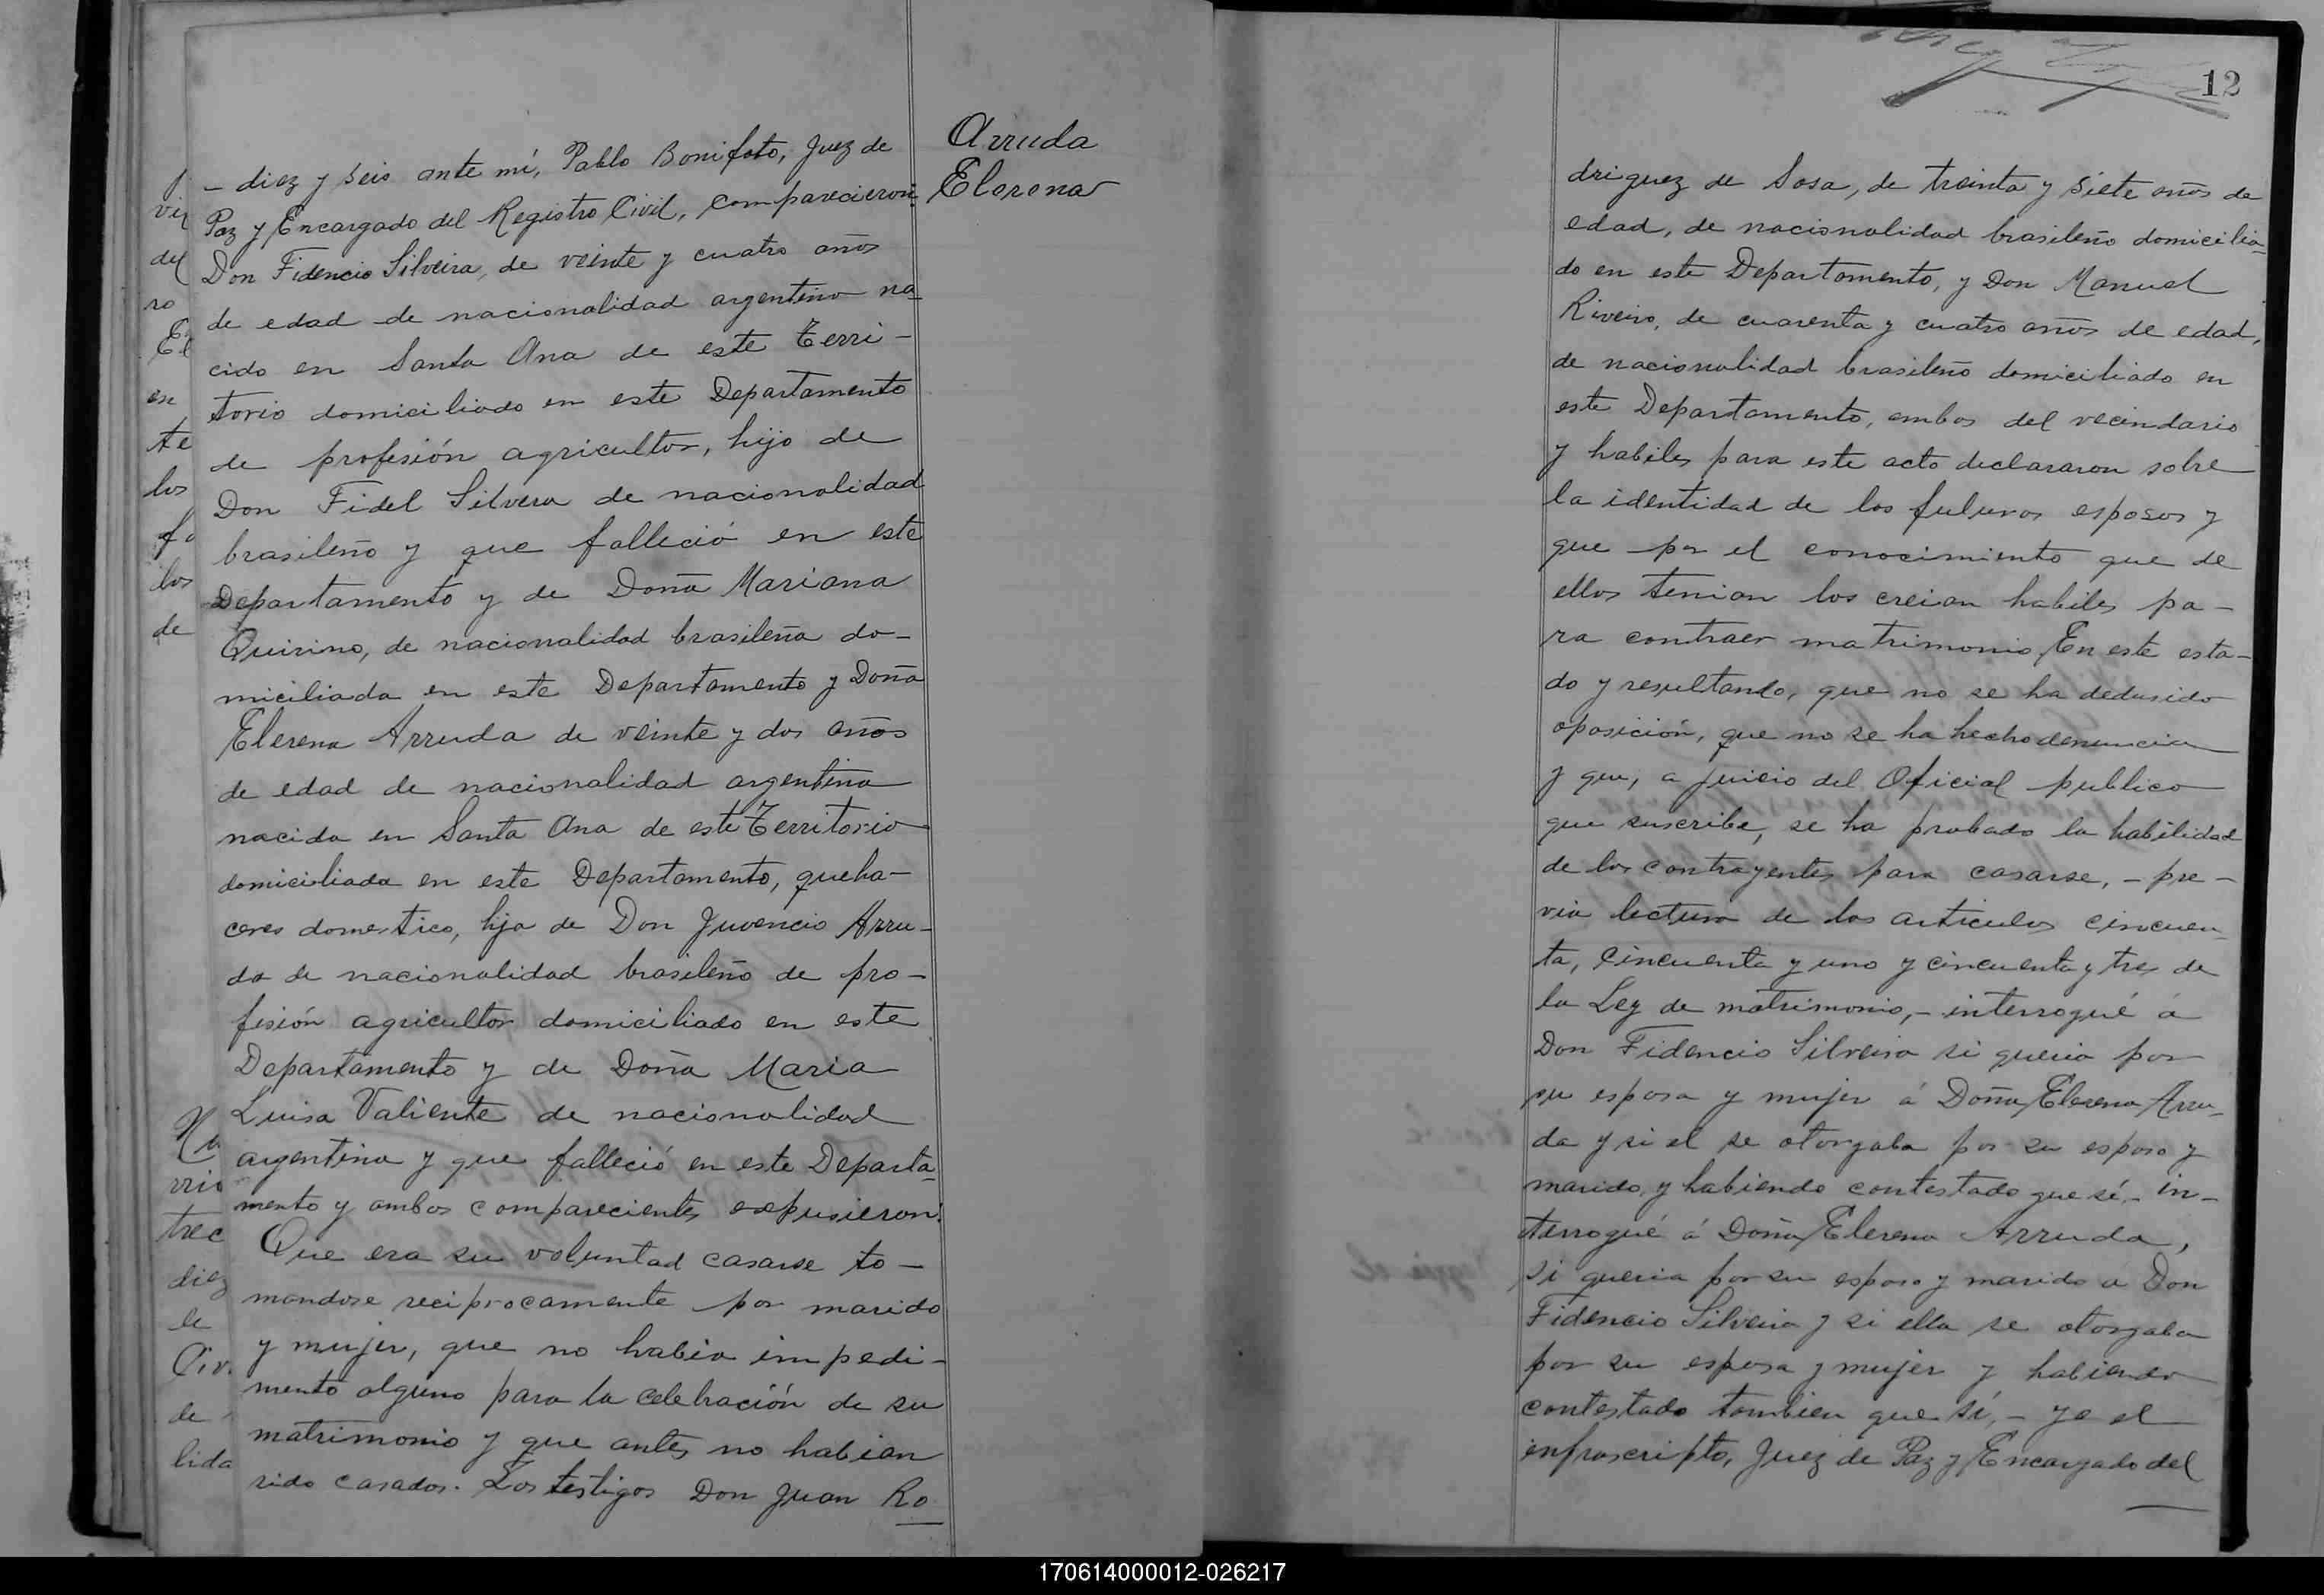 Arruda
Elerena
- diez y seis ante mí, Pablo Bonifato, Juez de
Paz y Encargado del Registro Civil, comparecieron:
Don Fidencio Silveira, de veinte y cuatro años
de edad de nacionalidad argentino na-
cido en Santa Ana de este Terri-
torio domiciliado en este Departamento
de profesión agricultor, hijo de
Don Fidel Silvera de nacionalidad
brasileño y que falleció en este
Departamento y de Doña Mariana
Quirino, de nacionalidad brasileña do-
miciliada en este Departamento y Doña
Elerena Arruda de veinte y dos años
de edad de nacionalidad argentina
nacida en Santa Ana de este Territorio
domiciliada en este Departamento, queha-
ceres domestico, hija de Don Juvencio Arru-
da de nacionalidad brasileño de pro-
fisión agricultor domiciliado en este
Departamento y de Doña Maria
Luisa Valiente de nacionalidad
argentina y que falleció en este Departa-
mento y ambos comparecientes expusieron:
Que era su voluntad casarse to-
mandose reciprocamente por marido
y mujer, que no habia impedi-
mento alguno para la celebración de su
matrimonio y que antes no habian
sido casados. Los testigos Don Juan Ro
12
driguez de Sosa, de treinta y siete años de
edad, de nacionalidad brasileño domicilia-
do en este Departamento, y Don Manuel
Riveiro, de cuarenta y cuatro años de edad,
de nacionalidad brasileño domiciliado en
este Departamento, ambos del vecindario
y habiles para este acto declararon sobre
la identidad de los fuluros esposos y
que por el conocimiento que de
ellos tenian los creian habiles pa-
ra contraer matrimonio En este esta-
do y resultando, que no se ha dedusido
oposición, que no se ha hecho denuncia
y que, a juicio del Oficial publico
que suscribe, se ha probado la habilidad
de los contrayentes para casarse, - pre-
via lectura de los articulos cincuen-
ta, cincuenta y uno y cincuenta y tres de
la Ley de matrimonio, - interrogué á
Don Fidencio Silveira si queria por
su esposa y mujer á Doña Elerena Arru-
da y si el se otorgaba por su esposo y
marido, y habiendo contestado que sí, - in-
terrogué á Doña Elerena Arruda,
si queria por su esposo y marido á Don
Fidencio Silveira y si ella se otorgaba
por su esposa y mujer y habiendo
contestado tambien que sí, - yo el
infrascripto, Juez de Paz y Encargado del
170614000012-026217